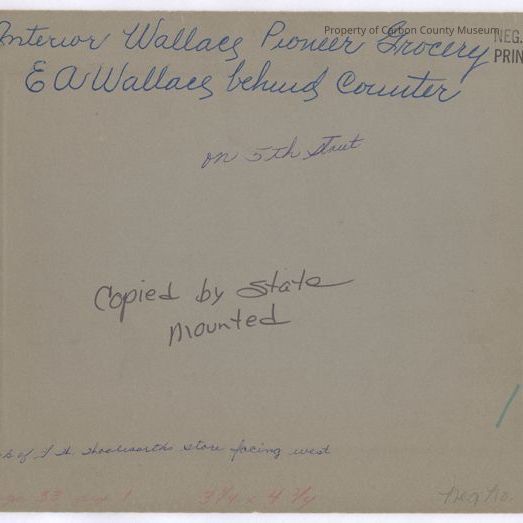 Property of Carbon County Museum
Interior Wallace Pioneer Grocery
NEG.
PRIN
E A Wallace behind Counter
on 5th Street
Copied by State
Mounted
of store facing west
33 1
3 3/4 x 4 3/4
Neg No.